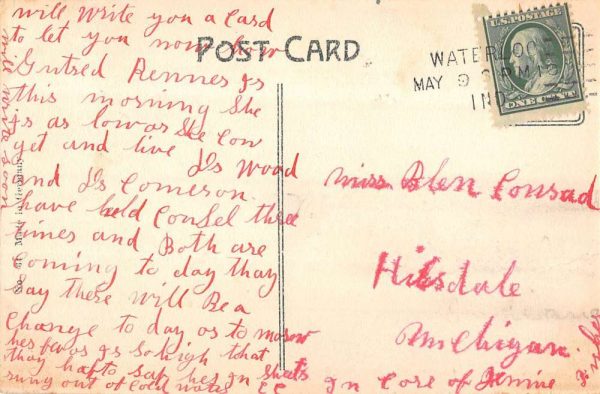 will Write you a Card
to let you now how
Gutred Rennes Is
this morning She
Is as low as She Con
get and live Is Wood
and Is Comeson
have held Consel three
times and Both are
Coming to day thay
say there will Be a
Change to day or to morow
her fevor Is So high that
thay hap to Sap her In Sheets
rung out of Cold water
will write soon
Made in Germany
POST CARD
U.S. POSTAGE
ONE CENT
WATERLOO
MAY 9 PM
IND
Miss Blen Conrad
Hilsdale
Michigan
In Core of Jennie